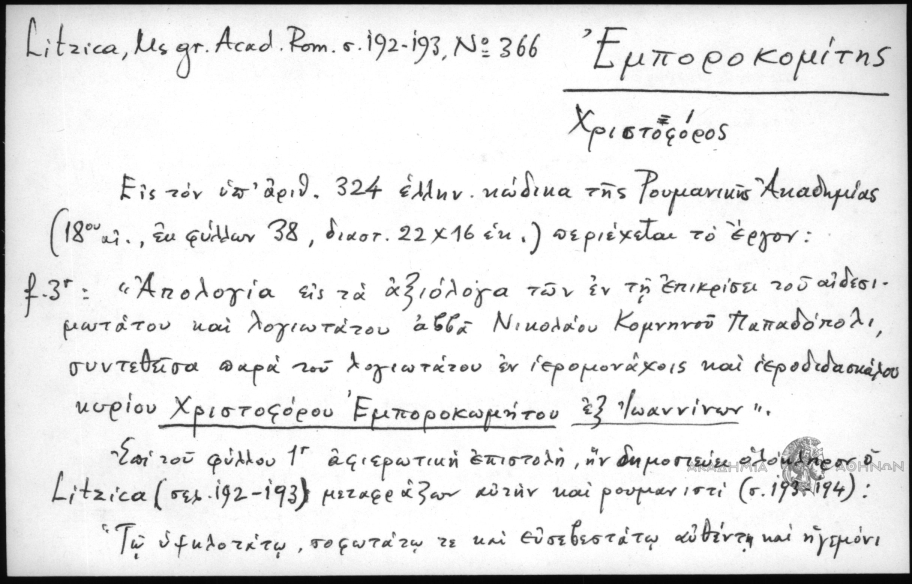 Litzica, Ms gr. Acad. Rom. σ. 192-193, Nο 366
Ἐμποροκομίτης
Χριστοφόρος
Εἰς τὸν ὑπ' ἀριθ. 324 ἑλλην. κώδικα τῆς Ρουμανικῆς Ἀκαδημίας
(18ου αἰ., ἐκ φύλλων 38, διαστ. 22 × 16 ἑκ.) περιέχεται τὸ ἔργον:
f. 3r: "Ἀπολογία εἰς τὰ ἀξιόλογα τῶν ἐν τῇ ἐπικρίσει τοῦ αἰδεσι-
μωτάτου καὶ λογιωτάτου ἀββᾶ Νικολάου Κομνηνοῦ Παπαδόπολι,
συντεθεῖσα παρὰ τοῦ λογιωτάτου ἐν ἱερομονάχοις καὶ ἱεροδιδασκάλου
κυρίου Χριστοφόρου Ἐμποροκωμήτου ἐξ Ἰωαννίνων".
Ἐπὶ τοῦ φύλλου 1r ἀφιερωτικὴ ἐπιστολή, ἣν δημοσιεύει ὁλόκληρον ὁ
ΑΚΑΔΗΜΙΑ ΑΘΗΝΩΝ
Litzica (σελ. 192-193) μεταφράζων αὐτὴν καὶ ρουμανιστί (σ. 193-194):
"Τῷ ὑψηλοτάτῳ, σοφωτάτῳ τε καὶ εὐσεβεστάτῳ αὐθέντῃ καὶ ἡγεμόνι